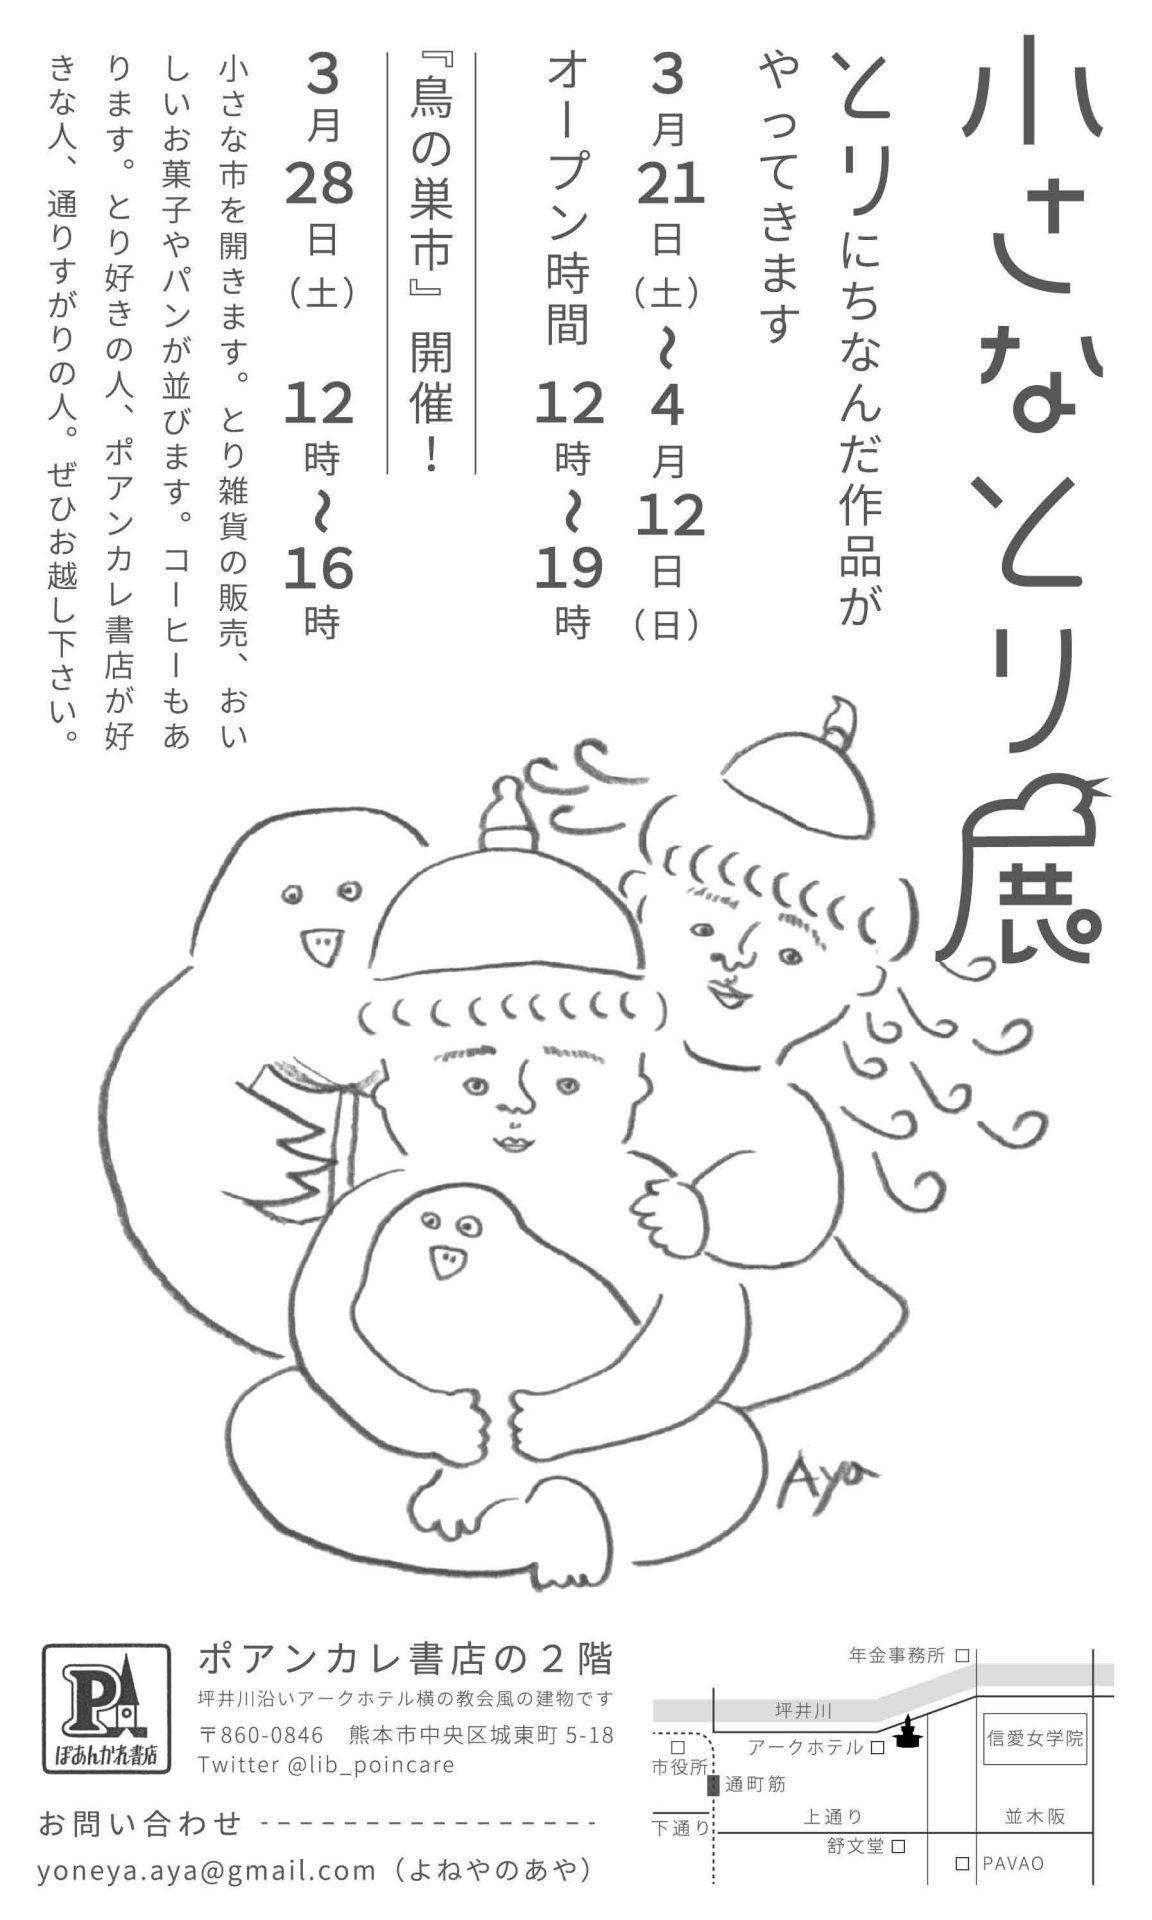 小さなとり展
とりにちなんだ作品が
やってきます
3月21日（土）〜4月12日（日）
オープン時間 12時〜19時
『鳥の巣市』開催！
3月28日（土） 12時〜16時
小さな市を開きます。とり雑貨の販売、おい
しいお菓子やパンが並びます。コーヒーもあ
ります。とり好きの人、ポアンカレ書店が好
きな人、通りすがりの人。ぜひお越し下さい。
Aya
P
ぽあんかれ書店
ポアンカレ書店の2階
坪井川沿いアークホテル横の教会風の建物です
〒860-0846 熊本市中央区城東町 5-18
Twitter @lib_poincare
お問い合わせ
yoneya.aya@gmail.com（よねやのあや）
年金事務所
坪井川
信愛女学院
アークホテル
市役所
通町筋
上通り
並木阪
下通り
舒文堂
PAVAO